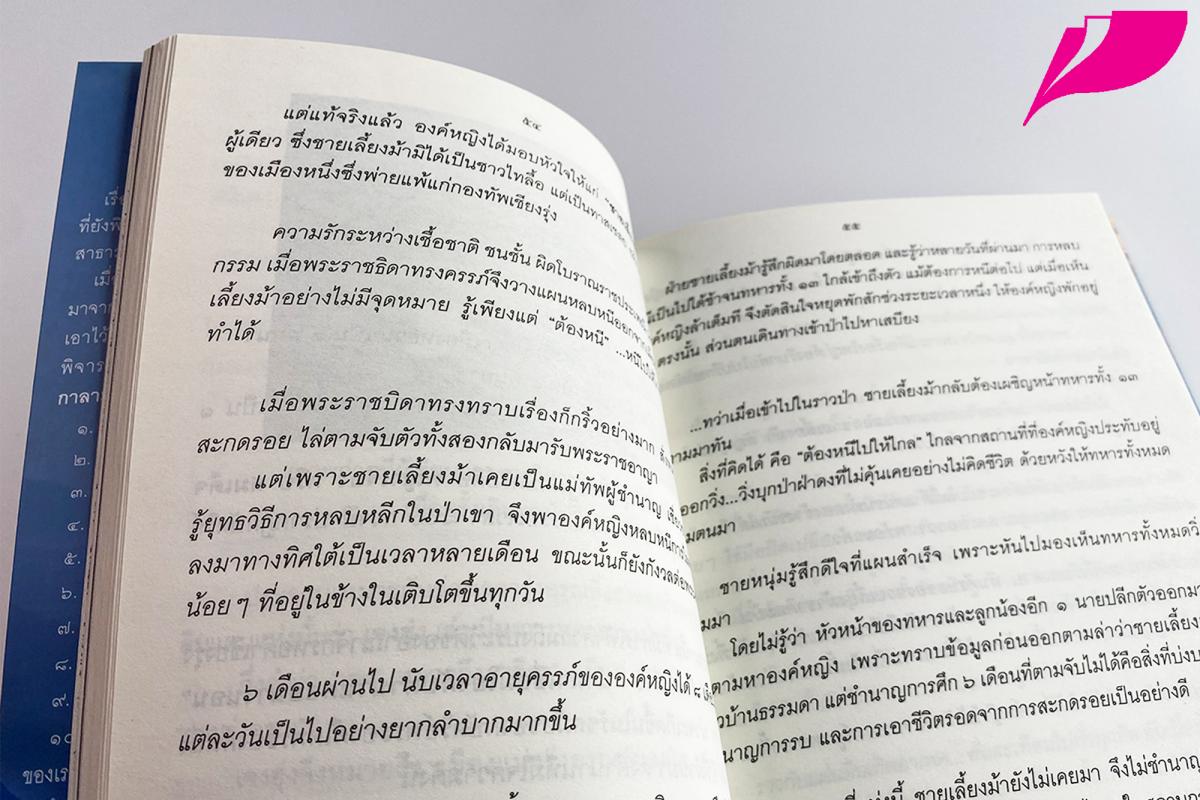 ๕๔
แต่แท้จริงแล้ว องค์หญิงได้มอบหัวใจให้แก่
ผู้เดียว ซึ่งชายเลี้ยงม้ามิได้เป็นชาวไทลื้อ แต่เป็นทาสเชลย
ของเมืองหนึ่งซึ่งพ่ายแพ้แก่กองทัพเชียงรุ่ง
ความรักระหว่างเชื้อชาติ ชนชั้น ผิดโบราณราชประเพณี
กรรม เมื่อพระราชธิดาทรงครรภ์จึงวางแผนหลบหนีออก
เลี้ยงม้าอย่างไม่มีจุดหมาย รู้เพียงแต่ “ต้องหนี” ...หนี
ทำได้
เมื่อพระราชบิดาทรงทราบเรื่องก็กริ้วอย่างมาก
สะกดรอย ไล่ตามจับตัวทั้งสองกลับมารับพระราชอาญา
แต่เพราะชายเลี้ยงม้าเคยเป็นแม่ทัพผู้ชำนาญ
รู้ยุทธวิธีการหลบหลีกในป่าเขา จึงพาองค์หญิงหลบหนี
ลงมาทางทิศใต้เป็นเวลาหลายเดือน ขณะนั้นก็ยังกังวล
น้อย ๆ ที่อยู่ในข้างในเติบโตขึ้นทุกวัน
๖ เดือนผ่านไป นับเวลาอายุครรภ์ขององค์หญิงได้ ๘
แต่ละวันเป็นไปอย่างยากลำบากมากขึ้น
๕๕
ฝ่ายชายเลี้ยงม้ารู้สึกผิดมาโดยตลอด และรู้ว่าหลายวันที่ผ่านมา การหลบ
หนีเป็นไปได้ช้าจนทหารทั้ง ๑๓ ใกล้เข้าถึงตัว แม้ต้องการหนีต่อไป แต่เมื่อเห็น
องค์หญิงล้าเต็มที จึงตัดสินใจหยุดพักสักช่วงระยะเวลาหนึ่ง ให้องค์หญิงพักอยู่
ตรงนั้น ส่วนตนเดินทางเข้าป่าไปหาเสบียง
...ทว่าเมื่อเข้าไปในราวป่า ชายเลี้ยงม้ากลับต้องเผชิญหน้าทหารทั้ง ๑๓
ตามมาทัน
สิ่งที่คิดได้ คือ “ต้องหนีไปให้ไกล” ไกลจากสถานที่ที่องค์หญิงประทับอยู่
ออกวิ่ง...วิ่งบุกป่าฝ่าดงที่ไม่คุ้นเคยอย่างไม่คิดชีวิต ด้วยหวังให้ทหารทั้งหมด
ตนมา
ชายหนุ่มรู้สึกดีใจที่แผนสำเร็จ เพราะหันไปมองเห็นทหารทั้งหมด
มา
โดยไม่รู้ว่า หัวหน้าของทหารและลูกน้องอีก ๑ นายปลีกตัวออก
ตามหาองค์หญิง เพราะทราบข้อมูลก่อนออกตามล่าว่าชายเลี้ยง
บ้านธรรมดา แต่ชำนาญการศึก ๖ เดือนที่ตามจับไม่ได้คือสิ่งที่บ่ง
การรบ และการเอาชีวิตรอดจากการสะกดรอยเป็นอย่างดี
นี้ ชายเลี้ยงม้ายังไม่เคยมา จึงไม่ชำนาญ
เรื่
ที่ยัง
สาธาร
เมื่
มาจาก
เอาไว้
พิจาร
กาลา
๑.
๒.
๓.
๔.
๕.
๖.
๗.
๘.
๙.
๑๐
ของเร